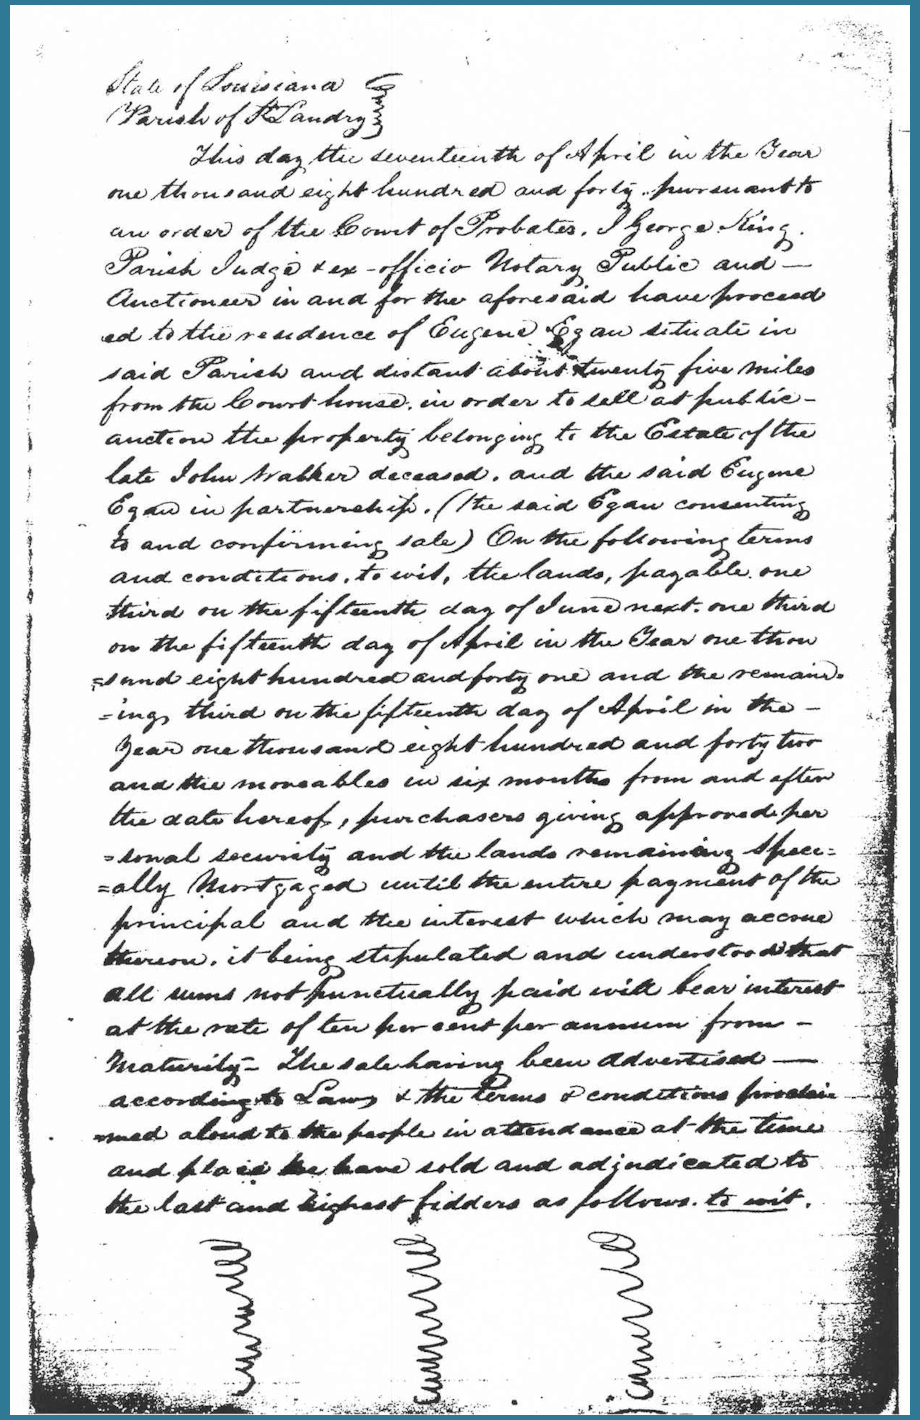 State of Louisiana
Parish of St Landry
This day the seventeenth of April in the Year
one thousand eight hundred and forty, pursuant to
an order of the Court of Probates, I George King.
Parish Judge & ex-officio Notary Public and —
Auctioneer in and for the aforesaid have proceed
ed to the residence of Eugene Egan situate in
said Parish and distant about twenty five miles
from the Court house, in order to sell at public -
auction the property belonging to the Estate of the
late John Walker deceased, and the said Eugene
Egan in partnership. (the said Egan consenting
to and confirming sale) On the following terms
and conditions, to wit, the lands, payable one
third on the fifteenth day of June next, one third
on the fifteenth day of April in the Year one thou
=sand eight hundred and forty one and the remain-
=ing third on the fifteenth day of April in the -
Year one thousand eight hundred and forty two
and the moveables in six months from and after
the date hereof, purchasers giving approved per
=sonal security and the lands remaining speci=
=ally Mortgaged until the entire payment of the
principal and the interest which may accrue
thereon, it being stipulated and understood that
all sums not punctually paid will bear interest
at the rate of ten per cent per annum from -
Maturity - The sale having been advertised —
according to Law, & the terms & conditions proclai
=med aloud to the people in attendance at the time
and place have sold and adjudicated to
the last and highest bidders as follows. to wit.